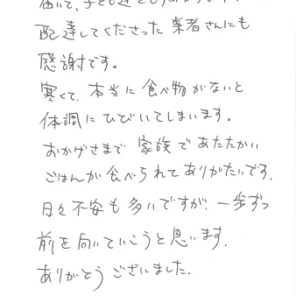 届いて、子ども達も
配達してくださった業者さんにも
感謝です。
寒くて、本当に食べ物がないと
体調にひびいてしまいます。
おかげさまで家族であたたかい
ごはんが食べられてありがたいです。
日々不安も多いですが、一歩ずつ
前を向いていこうと思います。
ありがとうございました。